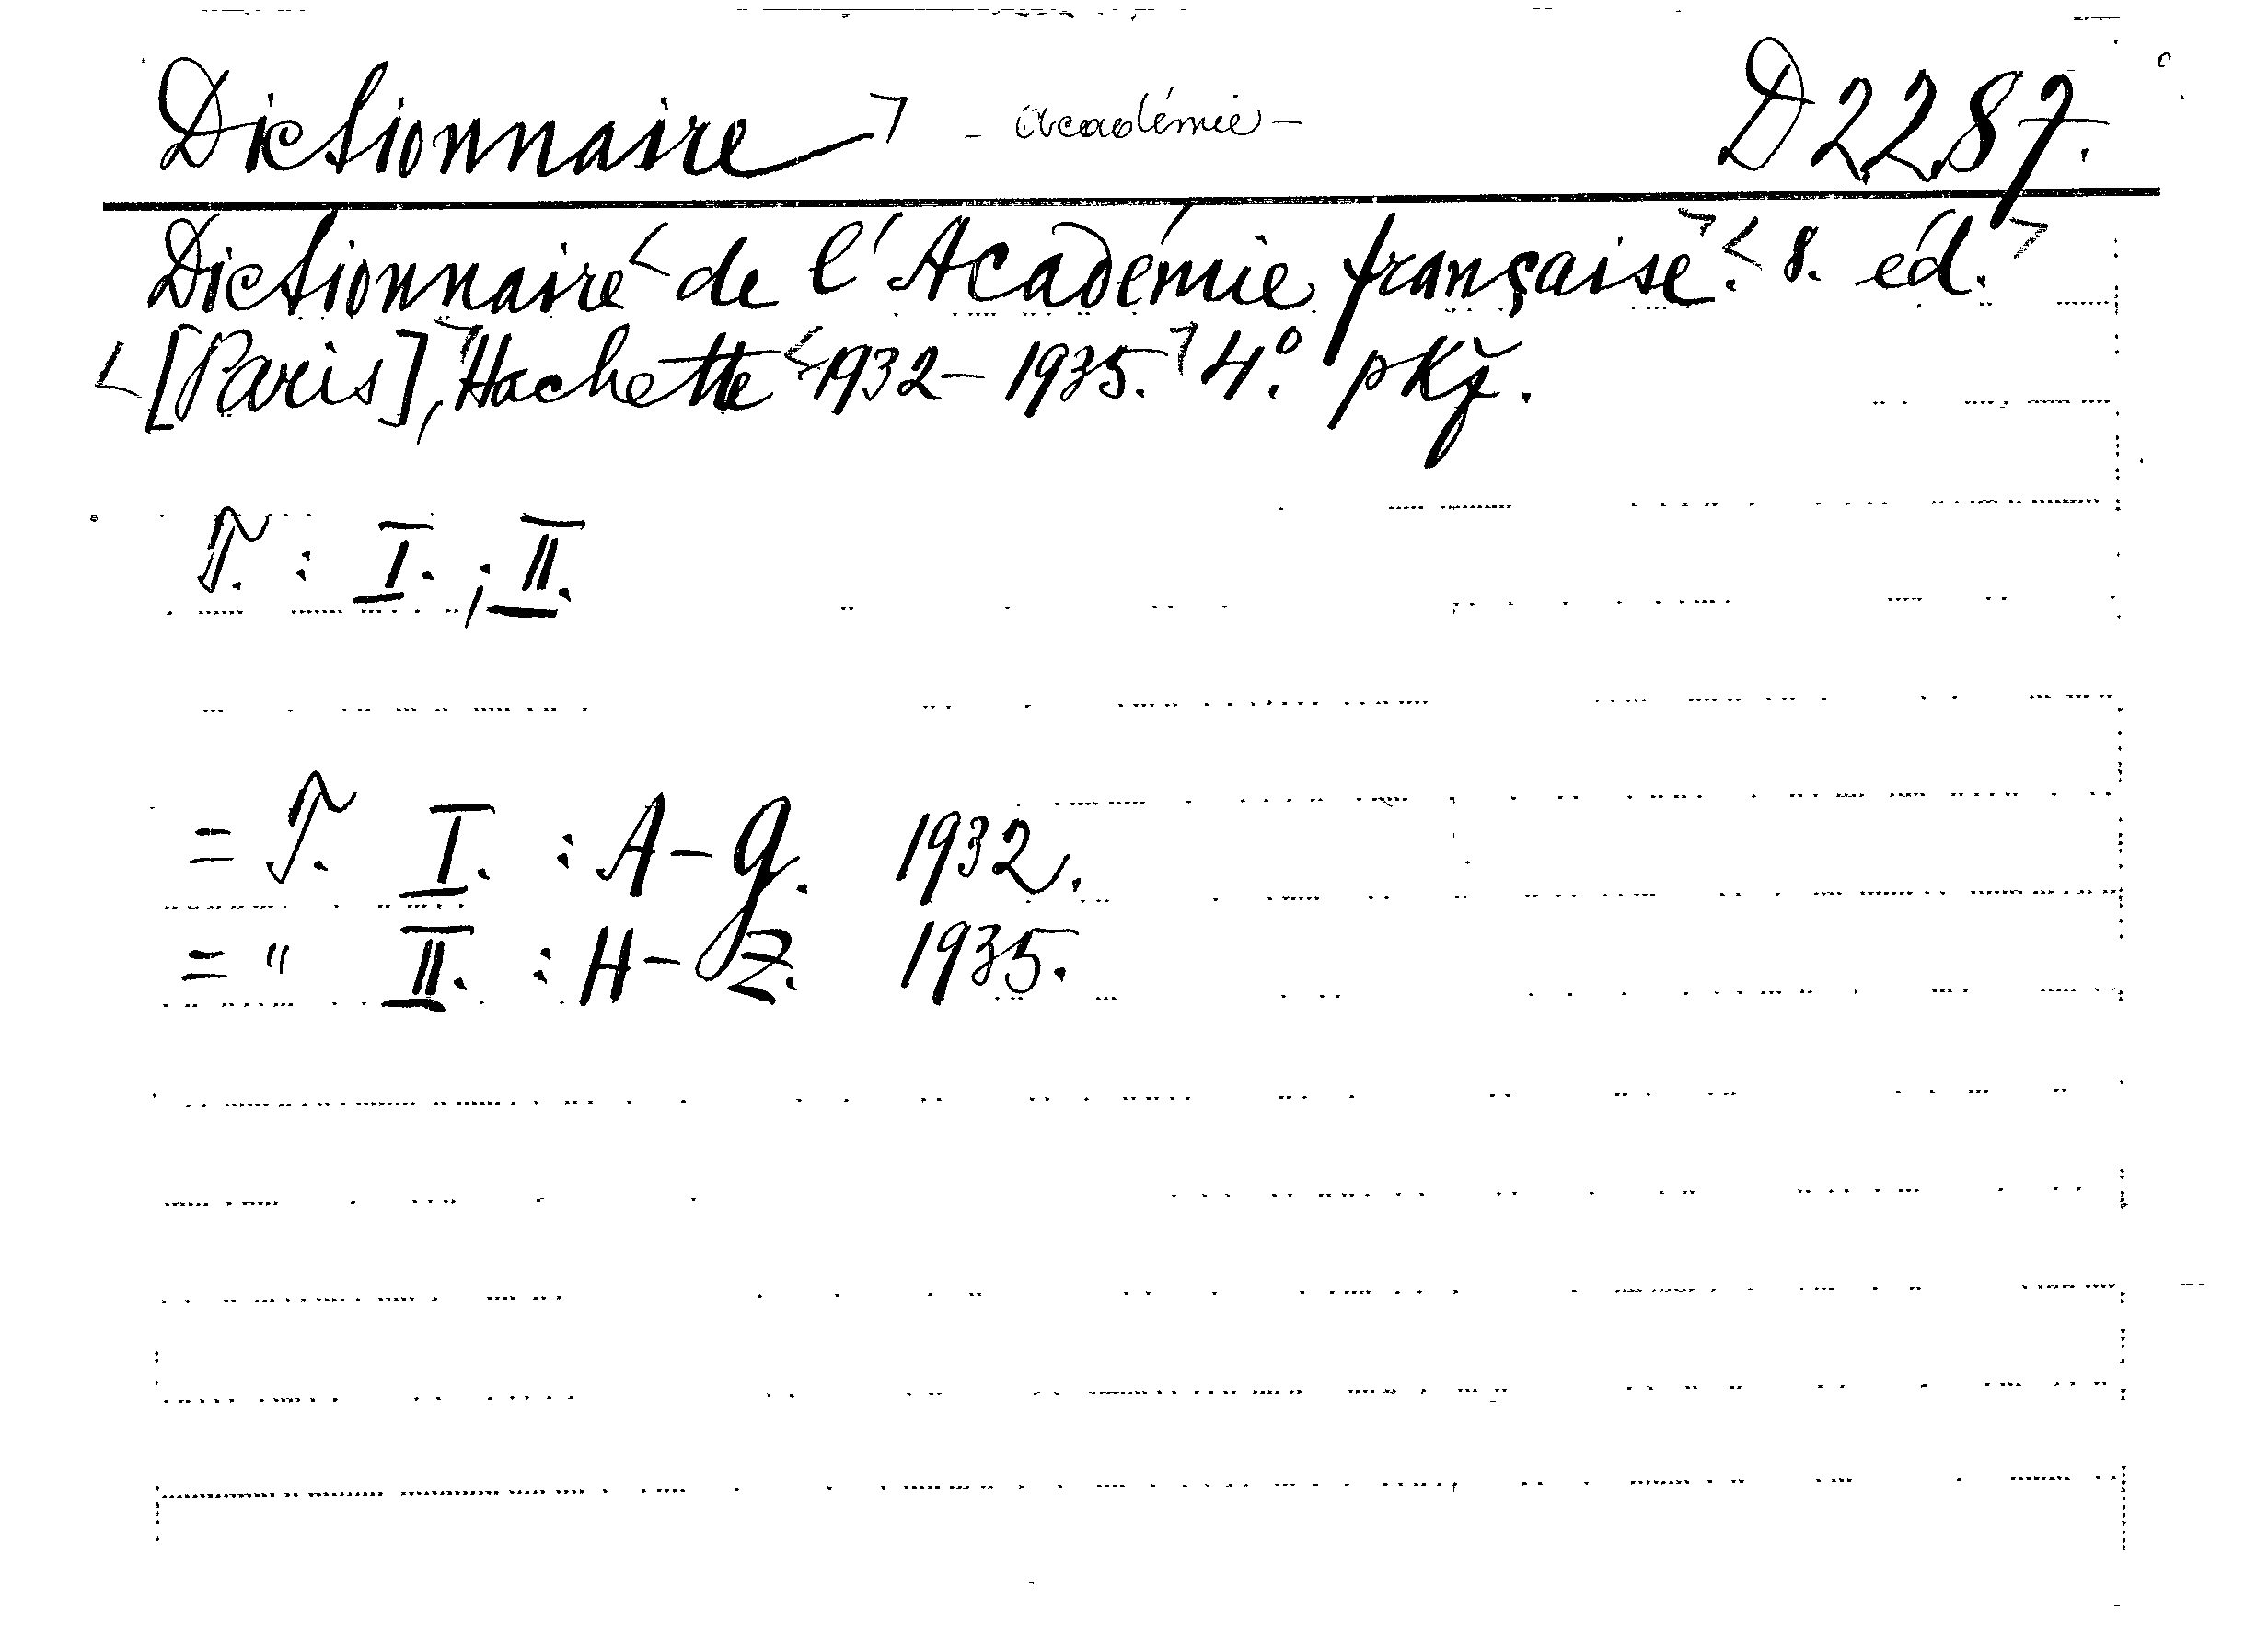 Dictionnaire - Académie - D 2287.
Dictionnaire de l'Académie française. 8. éd.
[Paris], Hachette 1932-1935. 4°. pKž.
T. : I. ; II.
= T. I. : A-G. 1932.
= " II. : H-Z. 1935.